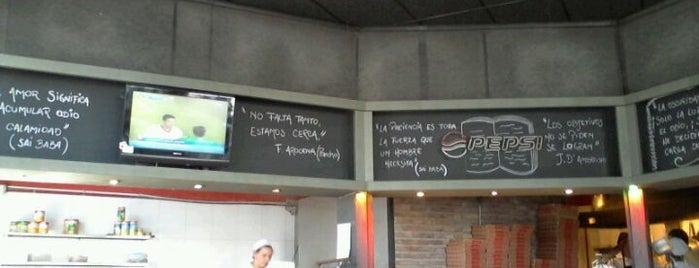 AMOR SIGNIFICA
ACUMULAR ODIO
CALAMIDAD"
(SAI BABA)
"NO FALTA TANTO,
ESTAMOS CERCA."
"LA PACIENCIA ES TODA
LA FUERZA QUE
UN HOMBRE
NECESITA"
(SAI BABA)
PEPSI
"LOS OBJETIVOS
NO SE PIDEN
SE LOGRAN"
"LA
SOLO LA
EL ODIO,